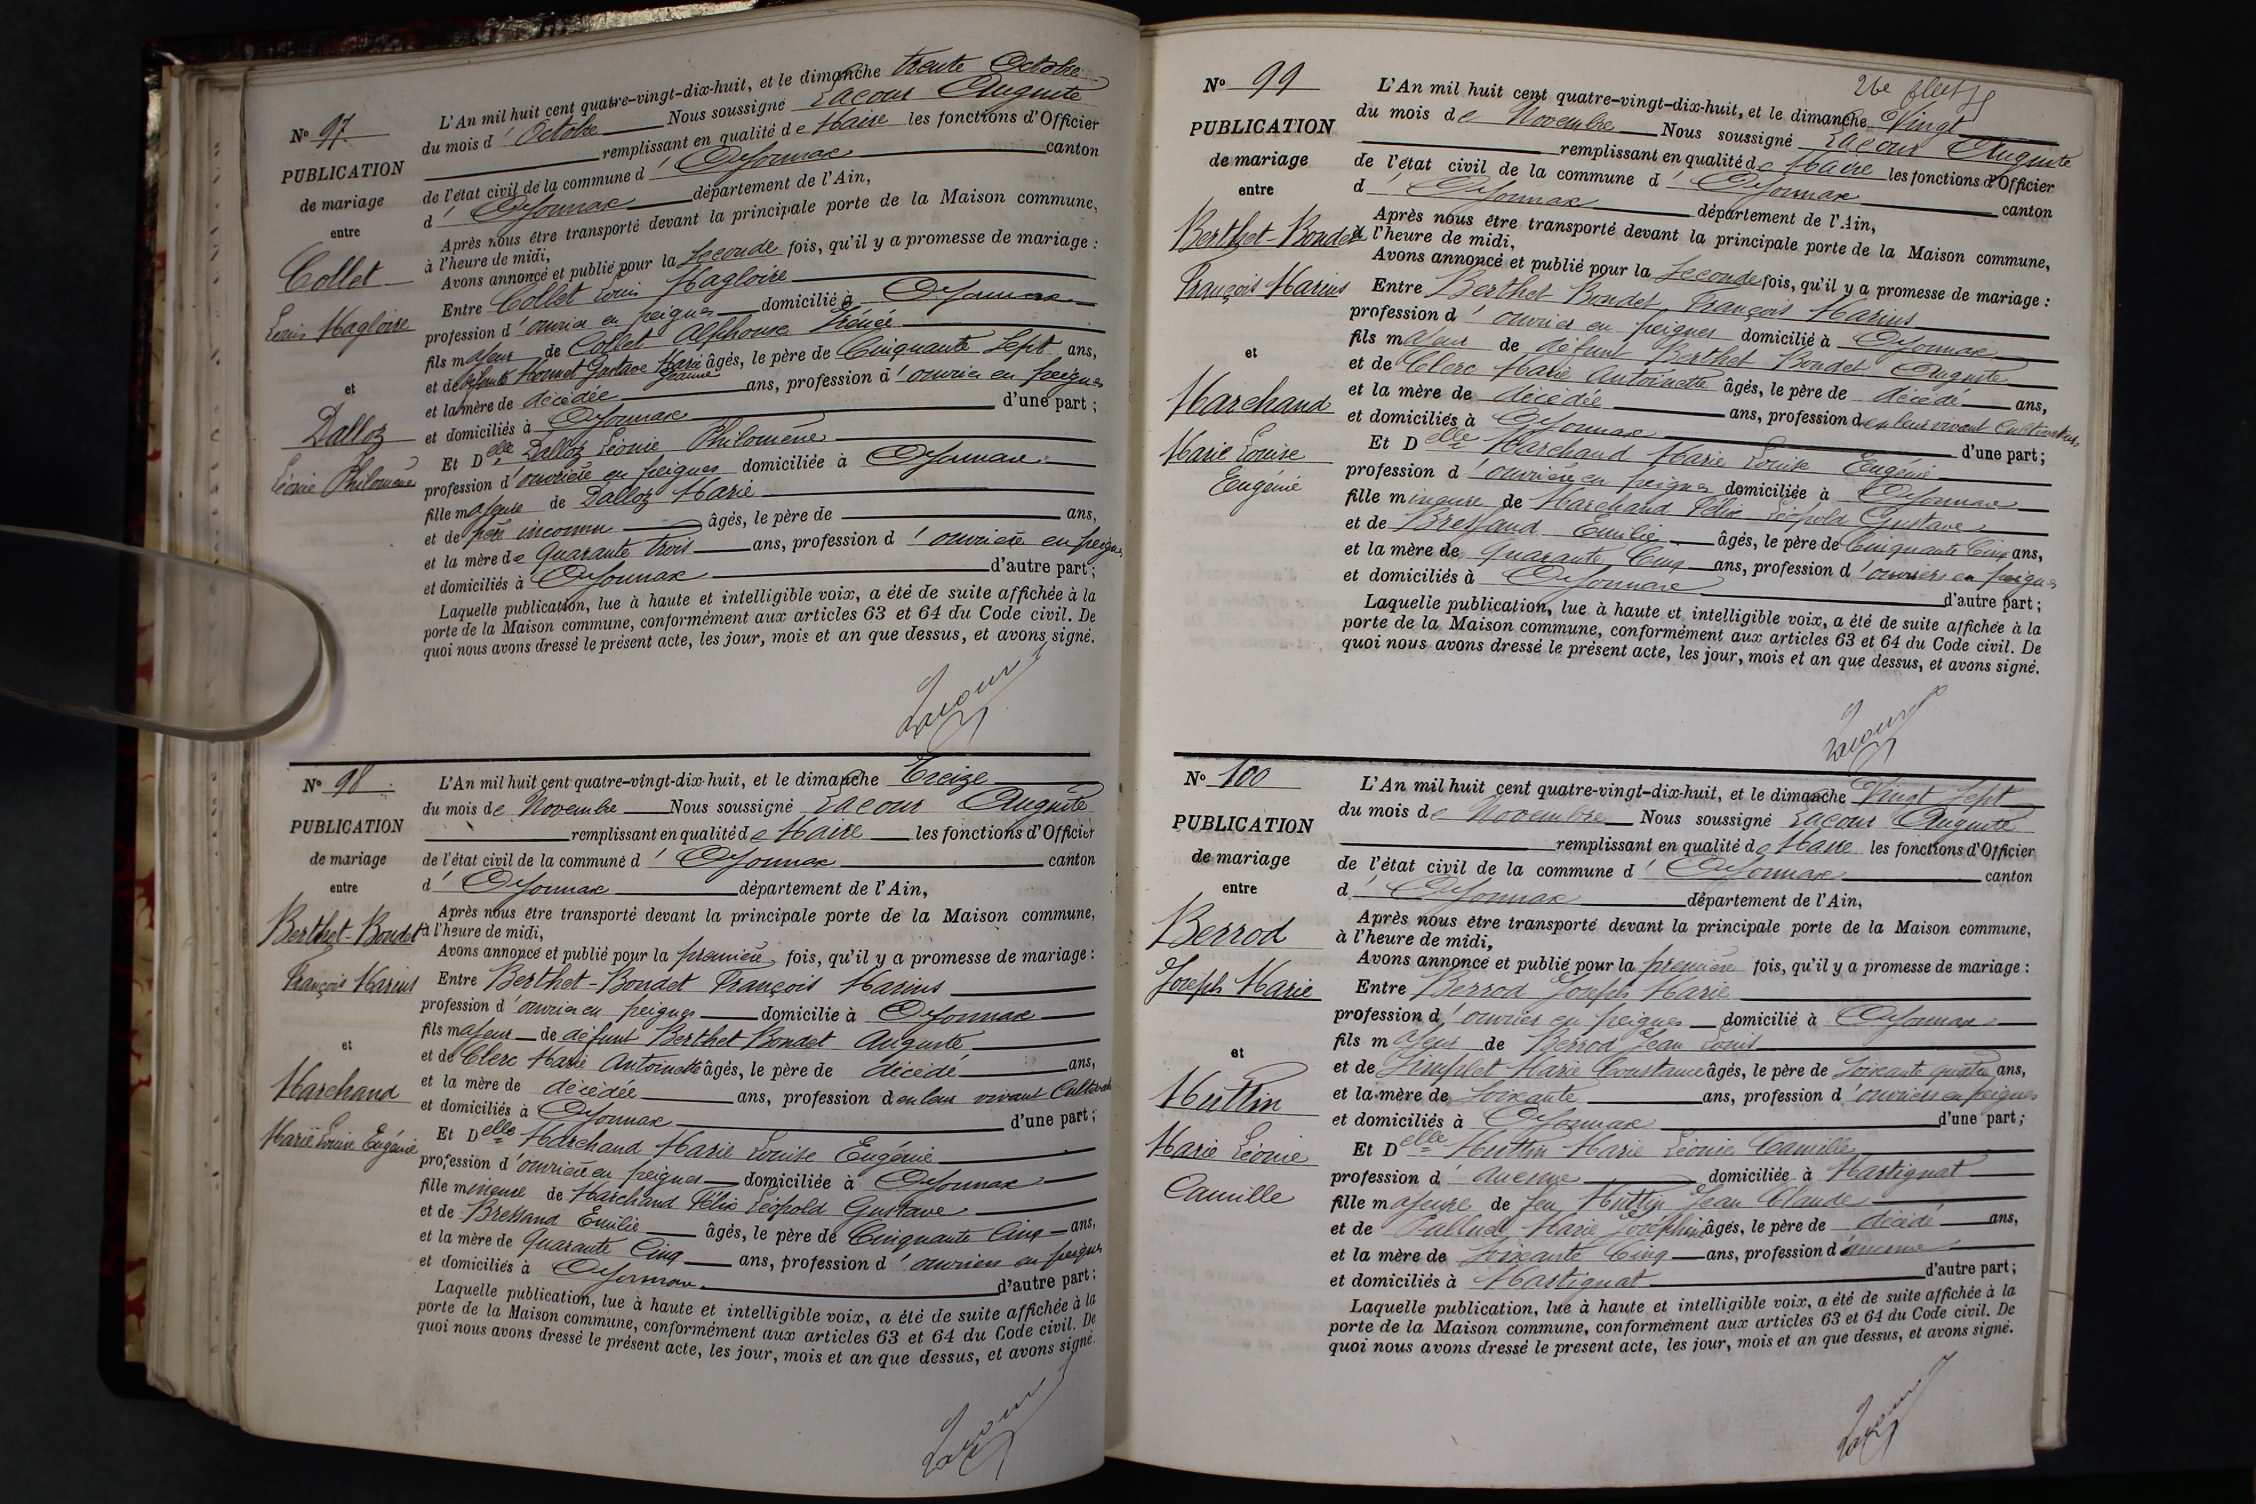 N° 97
PUBLICATION
de mariage
entre
Collet
Louis Magloire
et
Dalloz
Léonie Philomène
L'An mil huit cent quatre-vingt-dix-huit, et le dimanche trente Octobre
du mois d'Octobre Nous soussigné Lacour Auguste
remplissant en qualité de Maire les fonctions d'Officier
de l'état civil de la commune d'Oyonnax canton
d'Oyonnax département de l'Ain,
Après nous être transporté devant la principale porte de la Maison commune,
à l'heure de midi,
Avons annoncé et publié pour la seconde fois, qu'il y a promesse de mariage :
Entre Collet Louis Magloire
profession d'ouvrier en peignes domicilié à Oyonnax
fils majeur de Collet Alphonse Irénée
et de défunte Monnet Gustave Marie Jeanne âgés, le père de Cinquante Sept ans,
et la mère de décédée ans, profession d'ouvrier en peignes
et domiciliés à Oyonnax d'une part ;
Et Delle Dalloz Léonie Philomène
profession d'ouvrière en peignes domiciliée à Oyonnax
fille majeure de Dalloz Marie
et de père inconnu âgés, le père de ans,
et la mère de Quarante trois ans, profession d'ouvrière en peignes
et domiciliés à Oyonnax d'autre part ;
Laquelle publication, lue à haute et intelligible voix, a été de suite affichée à la
porte de la Maison commune, conformément aux articles 63 et 64 du Code civil. De
quoi nous avons dressé le présent acte, les jour, mois et an que dessus, et avons signé.
Lacour
N° 98
PUBLICATION
de mariage
entre
Berthet-Bondet
François Marius
et
Marchand
Marie Louise Eugénie
L'An mil huit cent quatre-vingt-dix-huit, et le dimanche Treize
du mois de Novembre Nous soussigné Lacour Auguste
remplissant en qualité de Maire les fonctions d'Officier
de l'état civil de la commune d'Oyonnax canton
d'Oyonnax département de l'Ain,
Après nous être transporté devant la principale porte de la Maison commune,
à l'heure de midi,
Avons annoncé et publié pour la première fois, qu'il y a promesse de mariage :
Entre Berthet-Bondet François Marius
profession d'ouvrier en peignes domicilié à Oyonnax
fils majeur de défunt Berthet Bondet Auguste
et de Clerc Marie Antoinette âgés, le père de décédé ans,
et la mère de décédée ans, profession d en leur vivant Cultivat
et domiciliés à Oyonnax d'une part ;
Et Delle Marchand Marie Louise Eugénie
profession d'ouvrière en peignes domiciliée à Oyonnax
fille mineure de Marchand Félix Léopold Gustave
et de Bressand Emilie âgés, le père de Cinquante Cinq ans,
et la mère de Quarante Cinq ans, profession d'ouvriers en peignes
et domiciliés à Oyonnax d'autre part ;
Laquelle publication, lue à haute et intelligible voix, a été de suite affichée à la
porte de la Maison commune, conformément aux articles 63 et 64 du Code civil. De
quoi nous avons dressé le présent acte, les jour, mois et an que dessus, et avons signé.
Lacour
26e
N° 99
PUBLICATION
de mariage
entre
Berthet-Bondet
François Marius
et
Marchand
Marie Louise
Eugénie
L'An mil huit cent quatre-vingt-dix-huit, et le dimanche Vingt
du mois de Novembre Nous soussigné Lacour Auguste
remplissant en qualité de Maire les fonctions d'Officier
de l'état civil de la commune d'Oyonnax canton
d'Oyonnax département de l'Ain,
Après nous être transporté devant la principale porte de la Maison commune,
à l'heure de midi,
Avons annoncé et publié pour la Seconde fois, qu'il y a promesse de mariage :
Entre Berthet Bondet François Marius
profession d'ouvrier en peignes domicilié à Oyonnax
fils majeur de défunt Berthet Bondet Auguste
et de Clerc Marie Antoinette âgés, le père de décédé ans,
et la mère de décédée ans, profession d en leur vivant Cultivateurs
et domiciliés à Oyonnax d'une part ;
Et Delle Marchand Marie Louise Eugénie
profession d'ouvrière en peignes domiciliée à Oyonnax
fille mineure de Marchand Félix Léopold Gustave
et de Bressand Emilie âgés, le père de Cinquante Cinq ans,
et la mère de Quarante Cinq ans, profession d'ouvriers en peignes
et domiciliés à Oyonnax d'autre part ;
Laquelle publication, lue à haute et intelligible voix, a été de suite affichée à la
porte de la Maison commune, conformément aux articles 63 et 64 du Code civil. De
quoi nous avons dressé le présent acte, les jour, mois et an que dessus, et avons signé.
Lacour
N° 100
PUBLICATION
de mariage
entre
Berrod
Joseph Marie
et
Huttin
Marie Léonie
Camille
L'An mil huit cent quatre-vingt-dix-huit, et le dimanche Vingt Sept
du mois de Novembre Nous soussigné Lacour Auguste
remplissant en qualité de Maire les fonctions d'Officier
de l'état civil de la commune d'Oyonnax canton
d'Oyonnax département de l'Ain,
Après nous être transporté devant la principale porte de la Maison commune,
à l'heure de midi,
Avons annoncé et publié pour la première fois, qu'il y a promesse de mariage :
Entre Berrod Joseph Marie
profession d'ouvrier en peignes domicilié à Oyonnax
fils majeur de Berrod Jean Louis
et de Simplet Marie Constance âgés, le père de Soixante quatre ans,
et la mère de Soixante ans, profession d'ouvriers en peignes
et domiciliés à Oyonnax d'une part ;
Et Delle Huttin Marie Léonie Camille
profession d'aucune domiciliée à Martignat
fille majeure de feu Huttin Jean Claude
et de Marie Joséphine âgés, le père de décédé ans,
et la mère de Soixante Cinq ans, profession d'aucune
et domiciliés à Martignat d'autre part ;
Laquelle publication, lue à haute et intelligible voix, a été de suite affichée à la
porte de la Maison commune, conformément aux articles 63 et 64 du Code civil. De
quoi nous avons dressé le présent acte, les jour, mois et an que dessus, et avons signé.
Lacour